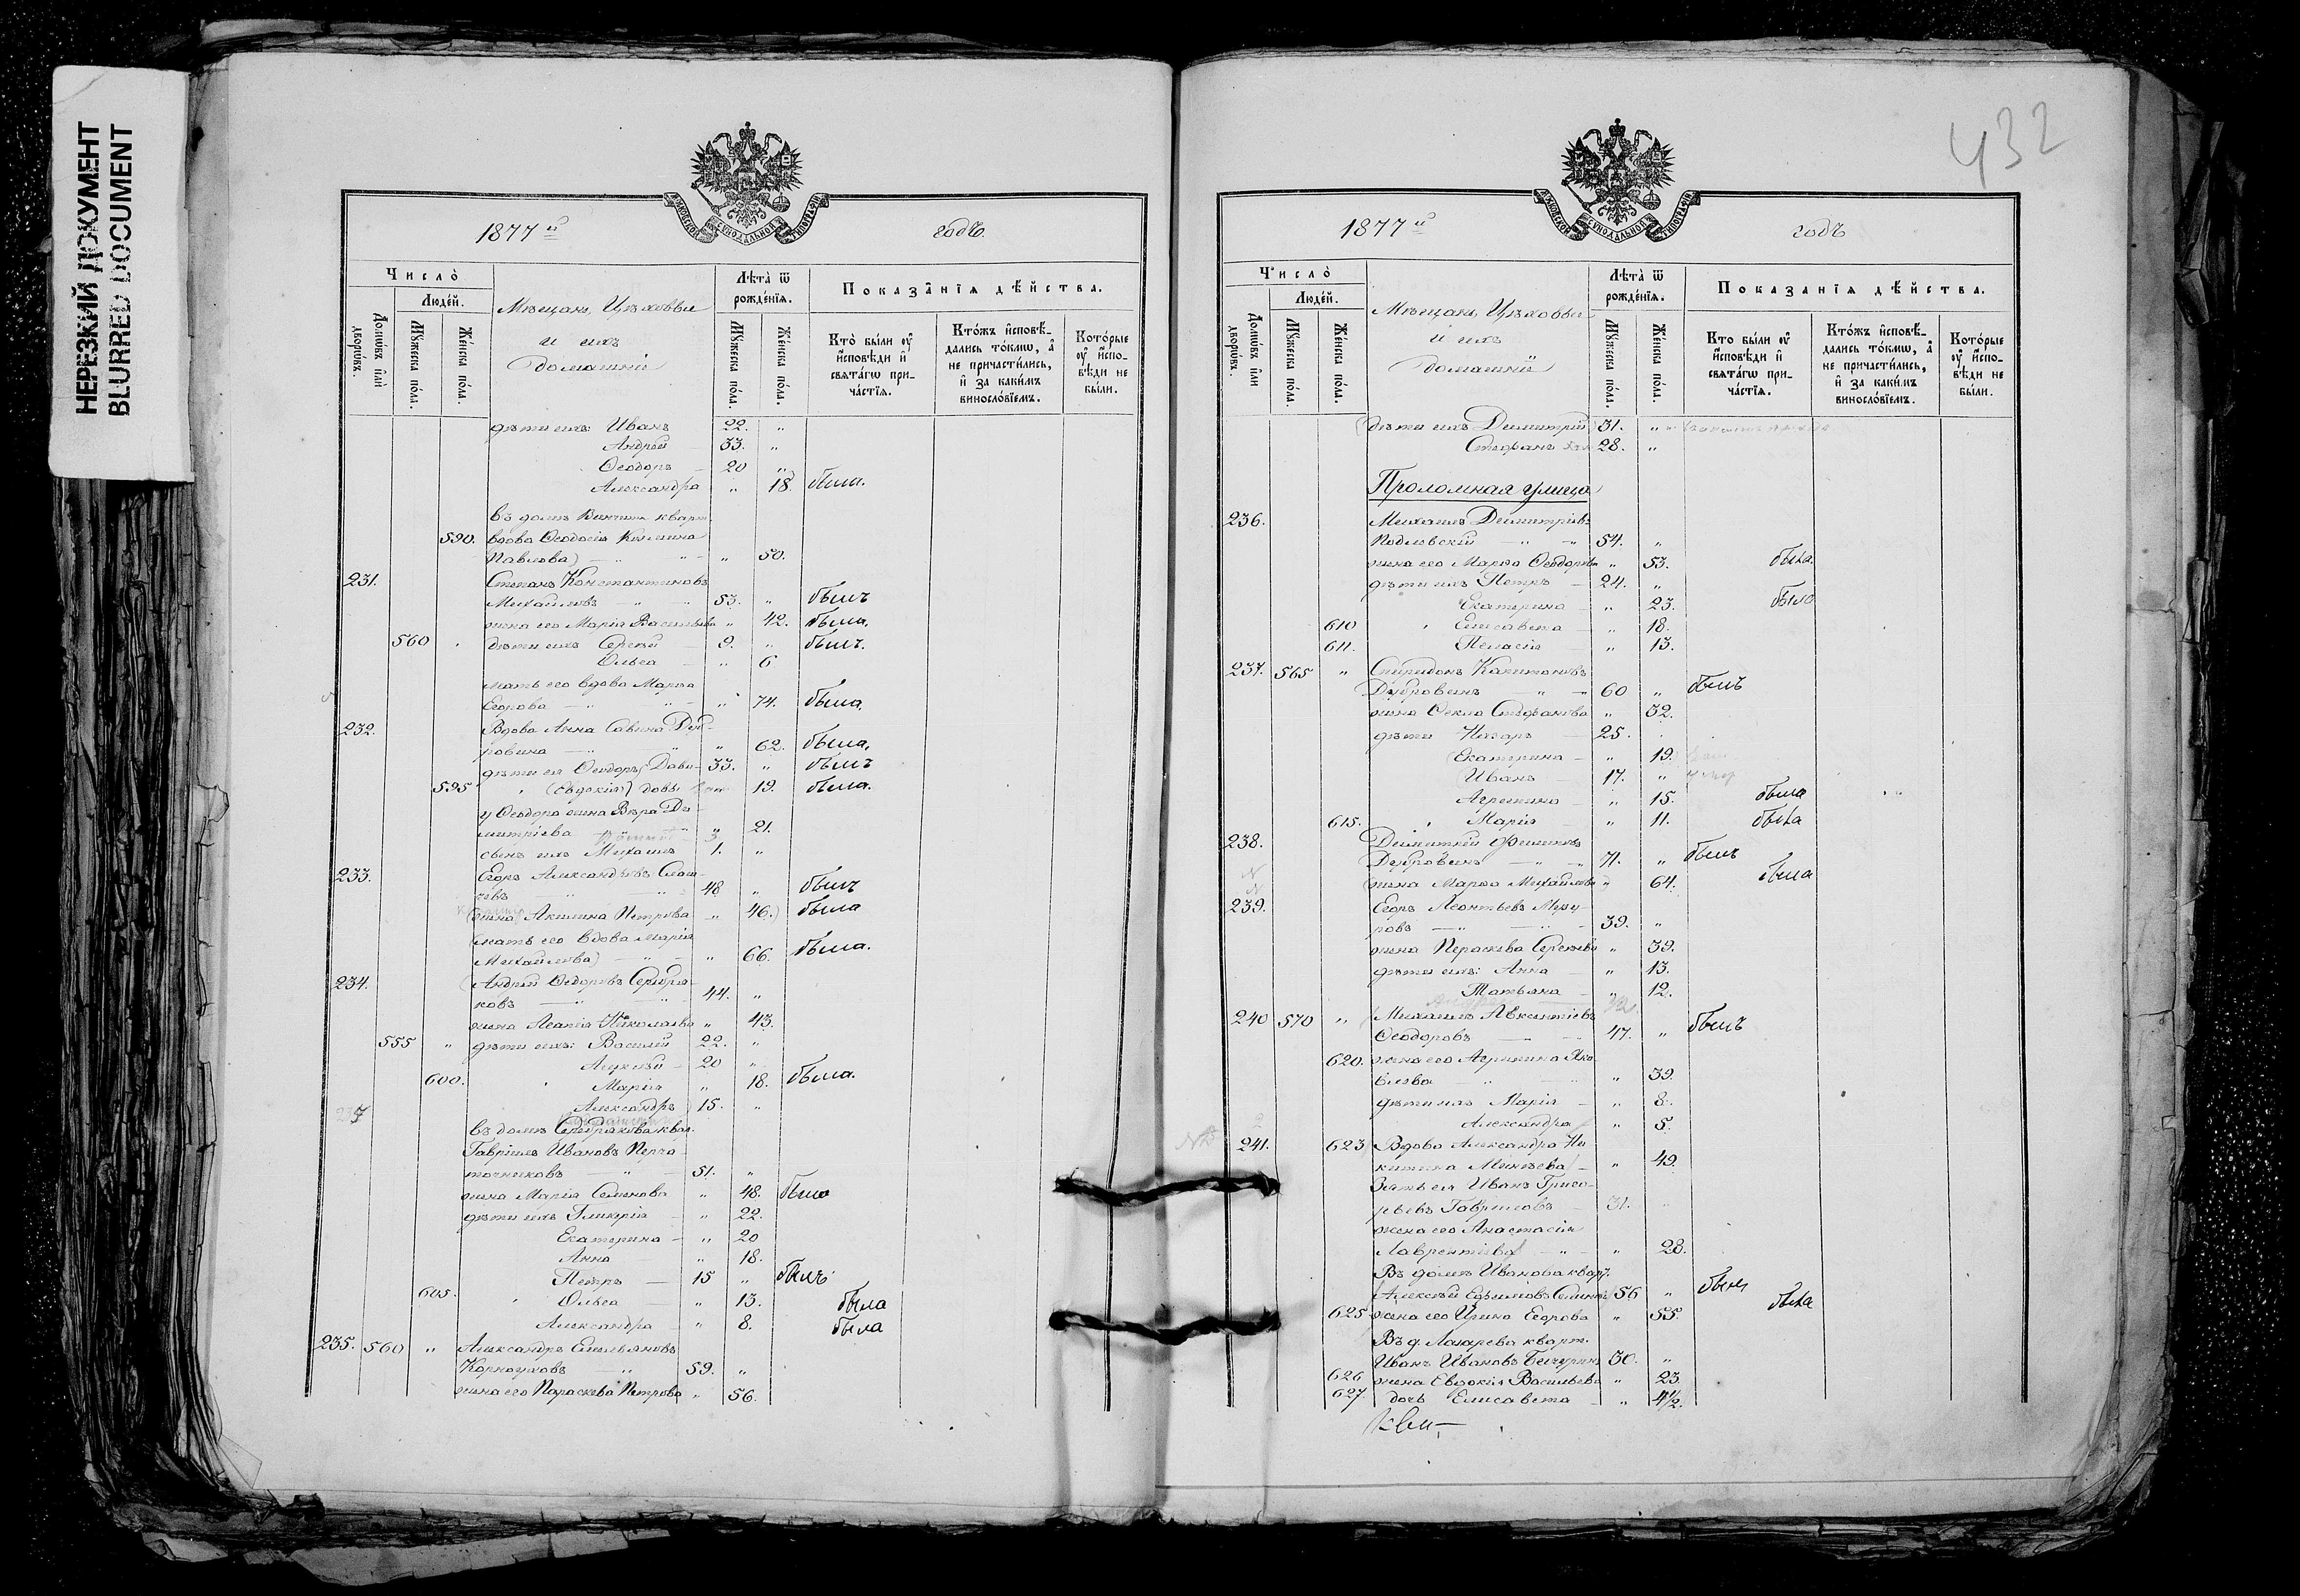 НЕРЕЗКИЙ ДОКУМЕНТ
BLURRED DOCUMENT
1877й годъ.
Число̀
Людéй.
Домѡ́въ и҆лѝ дворѡ́въ.
Мꙋ́жеска по́лꙋ.
Же́нска по́лꙋ.
Мѣщане, Цѣховые
и ихъ
домашніе
Лѣта̀ ѿ рожде́нїѧ.
Мꙋ́жеска по́лꙋ.
Же́нска по́лꙋ.
Показа̑нїѧ дѣ́йства.
Кто̀ бы́ли ᲂу҆ и҆сповѣ́ди и҆ свята́гѡ прича́стїѧ.
Кто́жъ и҆сповѣ́дались то́кмѡ, а҆ не причасти́лись, и҆ за каки́мъ винослѡ́вїемъ.
Кото́рые ᲂу҆ и҆сповѣ́ди не бы́ли.
дѣти ихъ: Иванъ 22. "
Андрей 33. "
Ѳеодоръ 20 "
Александра " 18. была.
въ домѣ кварт.
590. вдова Ѳеодосія
Павлова " 50.
231. Стефанъ Константиновъ
Михайловъ 53. " былъ
жена его Марія Васильева " 42. была.
560 дѣти ихъ Сергѣй 9. " былъ.
Ольга " 6
мать его вдова Марѳа
Егорова " 74. была.
232. Вдова Анна Савина Дуб-
ровина " 62. была.
дѣти ея Ѳеодоръ 33. " былъ
595 (Евдокія) 19. была.
у Ѳеодора жена Вѣра Ди-
митріева " 21.
сынъ ихъ Михаилъ 1. "
233. Егоръ Александровъ
48 " былъ
жена Акилина Петрова " 46. была
мать его вдова Марія
Михайлова) " 66. была.
234. Андрей Ѳедоровъ Серебря-
ковъ 44. "
жена Агапія Николаева " 43.
555 " дѣти ихъ: Василій 22. "
Алексѣй 20 "
600. Марія " 18. была.
Александръ 15. "
въ домѣ Серебрякова квар.
Гавріилъ Ивановъ Перча-
точниковъ 51. "
жена Марія Семенова " 48. была
дѣти ихъ Гликерія " 22.
Екатерина " 20
Анна " 18.
Петръ 15 " былъ
605. Ольга " 13. была
Александра " 8. была
235. 560 " Александръ Емельяновъ
Карноуховъ 59. "
жена его Параскева Петрова " 56.
432
1877й годъ
Число̀
Людéй.
Домѡ́въ и҆лѝ дворѡ́въ.
Мꙋ́жеска по́лꙋ.
Же́нска по́лꙋ.
Мѣщане, Цѣховые
и ихъ
домашніе
Лѣта̀ ѿ рожде́нїѧ.
Мꙋ́жеска по́лꙋ.
Же́нска по́лꙋ.
Показа̑нїѧ дѣ́йства.
Кто̀ бы́ли ᲂу҆ и҆сповѣ́ди и҆ свята́гѡ прича́стїѧ.
Кто́жъ и҆сповѣ́дались то́кмѡ, а҆ не причасти́лись, и҆ за каки́мъ винослѡ́вїемъ.
Кото́рые ᲂу҆ и҆сповѣ́ди не бы́ли.
дѣти ихъ Димитрій 31. "
Стефанъ 28. "
Проломная улица
236. Михаилъ Димитріевъ
Подловскій 54. "
жена его Марѳа Ѳеодорова " 53. была.
дѣти ихъ Петръ 24. "
Екатерина " 23. была
610 Елисавета " 18.
611. Пелагія " 13.
237. 565 " Спиридонъ Капитоновъ
Дубровинъ 60 " былъ
жена Ѳекла Стефанова " 32.
дѣти Назаръ 25.
Екатерина " 19.
Иванъ 17. "
Агрипина " 15. была
615. Марія " 11. была
238. Димитрій Филиповъ
Дубровинъ 71. " былъ
жена Марѳа Михайлова " 64. была
239. Егоръ Леонтьевъ
ровъ 39. "
жена Пераскева Сергѣева " 39.
дѣти ихъ: Анна " 13.
Татьяна " 12.
240 570 " Михаилъ Авксентіевъ
Ѳеодоровъ 47. " былъ
620. жена его Агрипина Яко-
влева " 39.
дѣти ихъ Марія " 8.
Александра " 5.
241. 623 Вдова Александра Ни-
китина Минѣева " 49.
Зять ея Иванъ Григо-
рьевъ Гавриловъ 31.
жена его Анастасія
Лаврентіева " 28.
Въ домѣ Иванова кварт.
Алексѣй Ефимовъ 56 " былъ
625 жена его Ирина Егорова " 55. была
Въ д. Лазарева кварт.
Иванъ Ивановъ Бичуринъ 30. "
626 жена Евдокія Васильева " 23
627. дочь Елисавета " 4½.